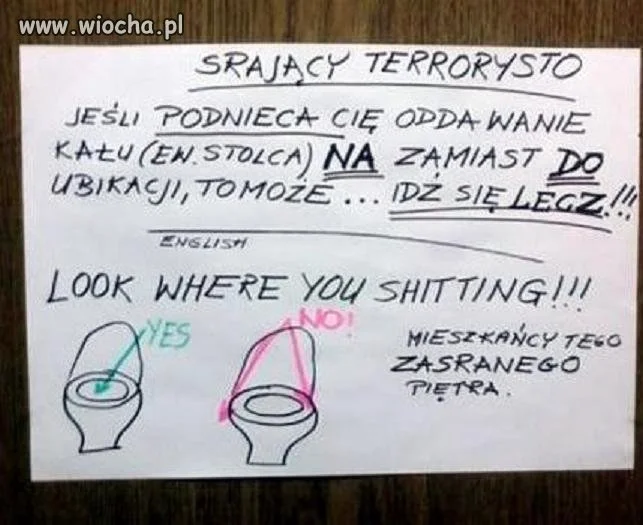 www.wiocha.pl
SRAJĄCY TERRORYSTO
JEŚLI PODNIECA CIĘ ODDAWANIE
KAŁU (EW. STOLCA) NA ZAMIAST DO
UBIKACJI, TO MOŻE... IDŹ SIĘ LECZ!!!
ENGLISH
LOOK WHERE YOU SHITTING!!!
YES
NO!
MIESZKAŃCY TEGO
ZASRANEGO
PIĘTRA.